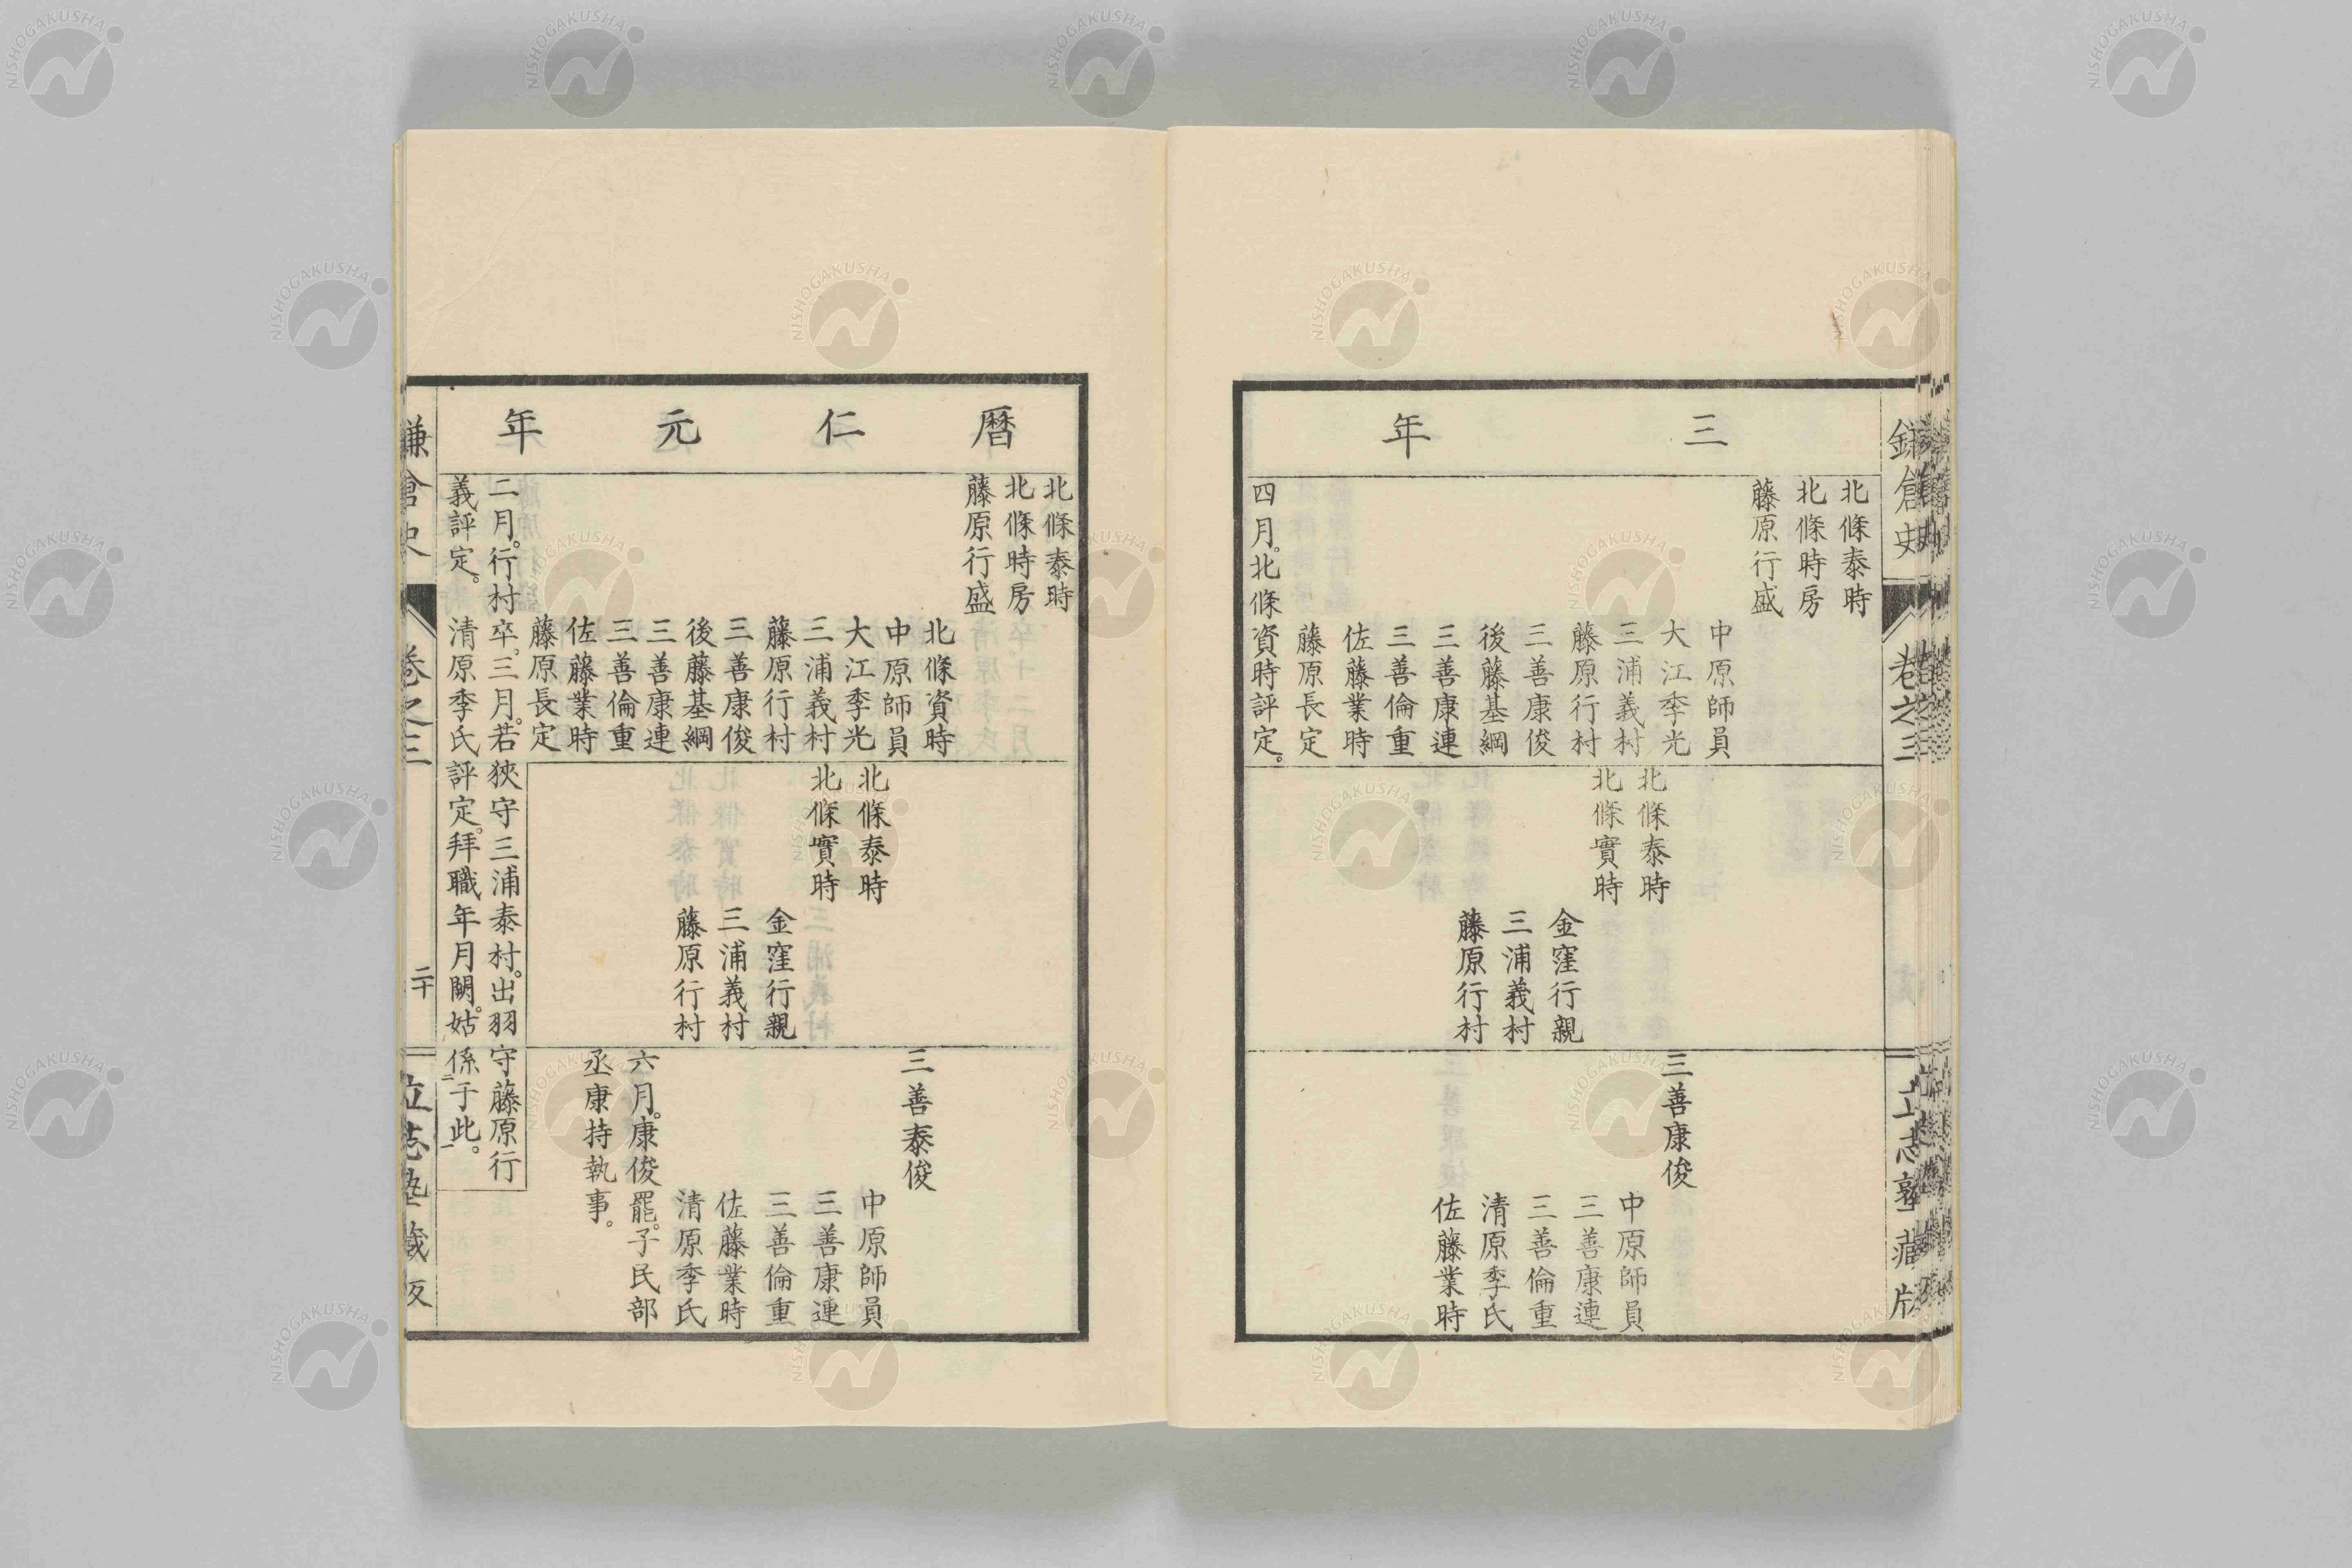 鎌倉史
卷之三
立志塾藏版
三年
北條泰時
北條時房
藤原行盛
中原師員
大江季光
三浦義村
藤原行村
三善康俊
後藤基綱
三善康連
三善倫重
佐藤業時
藤原長定
四月。北條資時評定。
北條泰時
北條實時
金窪行親
三浦義村
藤原行村
三善康俊
中原師員
三善康連
三善倫重
清原季氏
佐藤業時
曆仁元年
北條泰時
北條時房
藤原行盛
北條資時
中原師員
大江季光
三浦義村
藤原行村
三善康俊
後藤基綱
三善康連
三善倫重
佐藤業時
藤原長定
二月。行村卒。三月。若狹守三浦泰村。出羽守藤原行
義評定。清原季氏評定。拜職年月闕。姑係二于此一。
北條泰時
北條實時
金窪行親
三浦義村
藤原行村
三善泰俊
中原師員
三善康連
三善倫重
佐藤業時
清原季氏
六月。康俊罷。子民部
丞康持執事。
鎌倉史
卷之三
二十
立志塾藏版
NISHOGAKUSHA